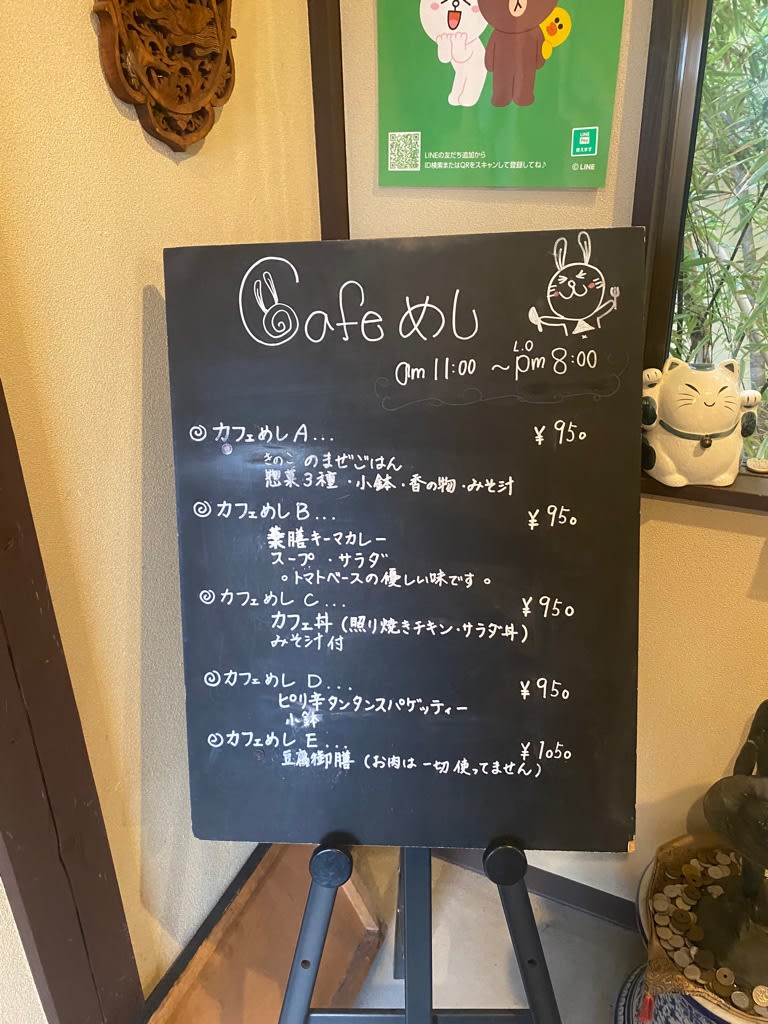 LINEの友だち追加から
ID検索またはQRをスキャンして登録してね♪
LINE
使えます
© LINE
Cafe めし
L.O
am 11:00 ~ pm 8:00
カフェめし A... ¥950
きのこ のまぜごはん
惣菜3種・小鉢・香の物・みそ汁
カフェめし B... ¥950
薬膳キーマカレー
スープ ・サラダ
。トマトベースの優しい味です。
カフェめし C... ¥950
カフェ丼 (照り焼きチキン・サラダ丼)
みそ汁付
カフェめし D... ¥950
ピリ辛タンタンスパゲッティー
小鉢
カフェめし E... ¥1050
豆腐御膳 (お肉は一切使ってません)